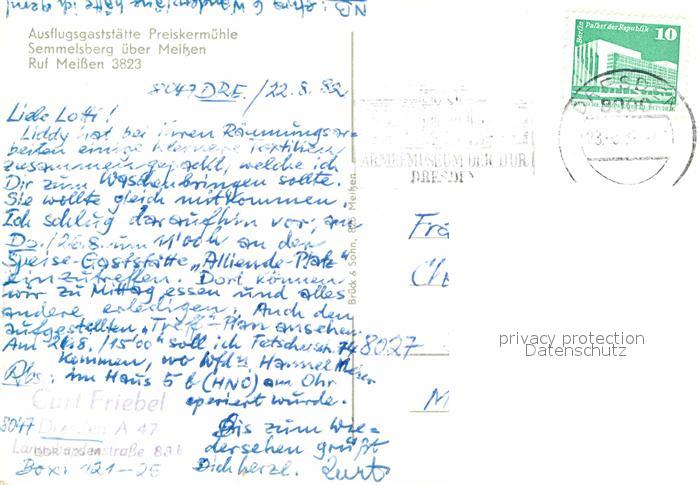 NB: etwa 6 W
Ausflugsgaststätte Preiskermühle
Semmelsberg über Meißen
Ruf Meißen 3823
8047 DRE. / 22.8.82
Liebe Lotti!
Liddy hat bei ihren Räumungsar-
beiten einige kleinere Textilien
zusammengepackt, welche ich
Dir zum Waschenbringen sollte.
Sie wollte gleich mitkommen.
Ich schlug daraufhin vor, am
Do./26.8. um 11°°h an der
Speise-Gaststätte "Alliende-Platz"
einzutreffen. Dort können
wir zu Mittag essen und alles
andere erledigen. Auch den
aufgestellten "Treff"-Plan ansehen.
Am /15°° soll ich Fetscherstr. 74
kommen, wo Wfd. Hannel
im Haus 5 b (HNO) am Ohr
operiert wurde.
Bis zum Wie-
dersehen grüßt
Dich herzl. Kurt
Abs.:
Curt Friebel
8047 Dresden A 47
straße 88b
Box: 121-25
Brück & Sohn, Meißen
Berlin Palast der Republik
10
DRESDEN
8000
ARMEEMUSEUM DER DDR
DRESDEN
8027
privacy protection
Datenschutz